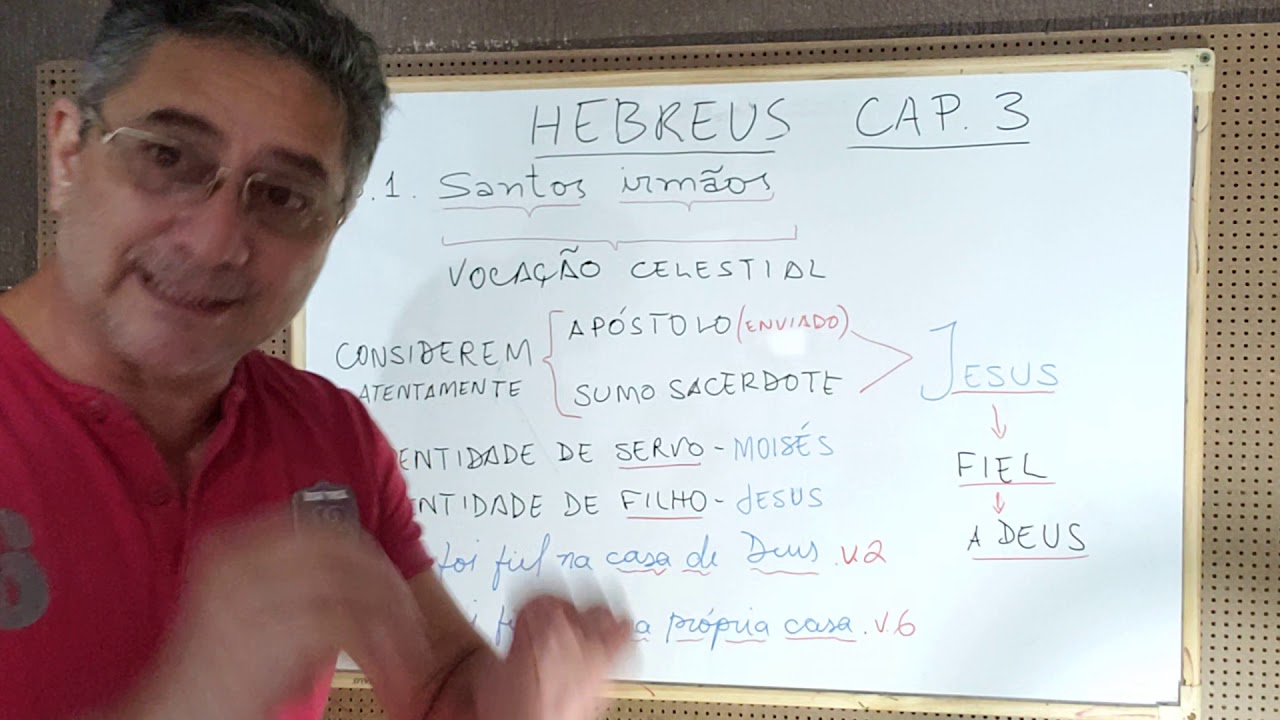 HEBREUS CAP. 3
.1. Santos irmãos
VOCAÇÃO CELESTIAL
CONSIDEREM ATENTAMENTE
APÓSTOLO (ENVIADO)
SUMO SACERDOTE
JESUS
FIEL
A DEUS
ENTIDADE DE SERVO - MOISÉS
ENTIDADE DE FILHO - JESUS
foi fiel na casa de Deus. v.2
própria casa. v.6